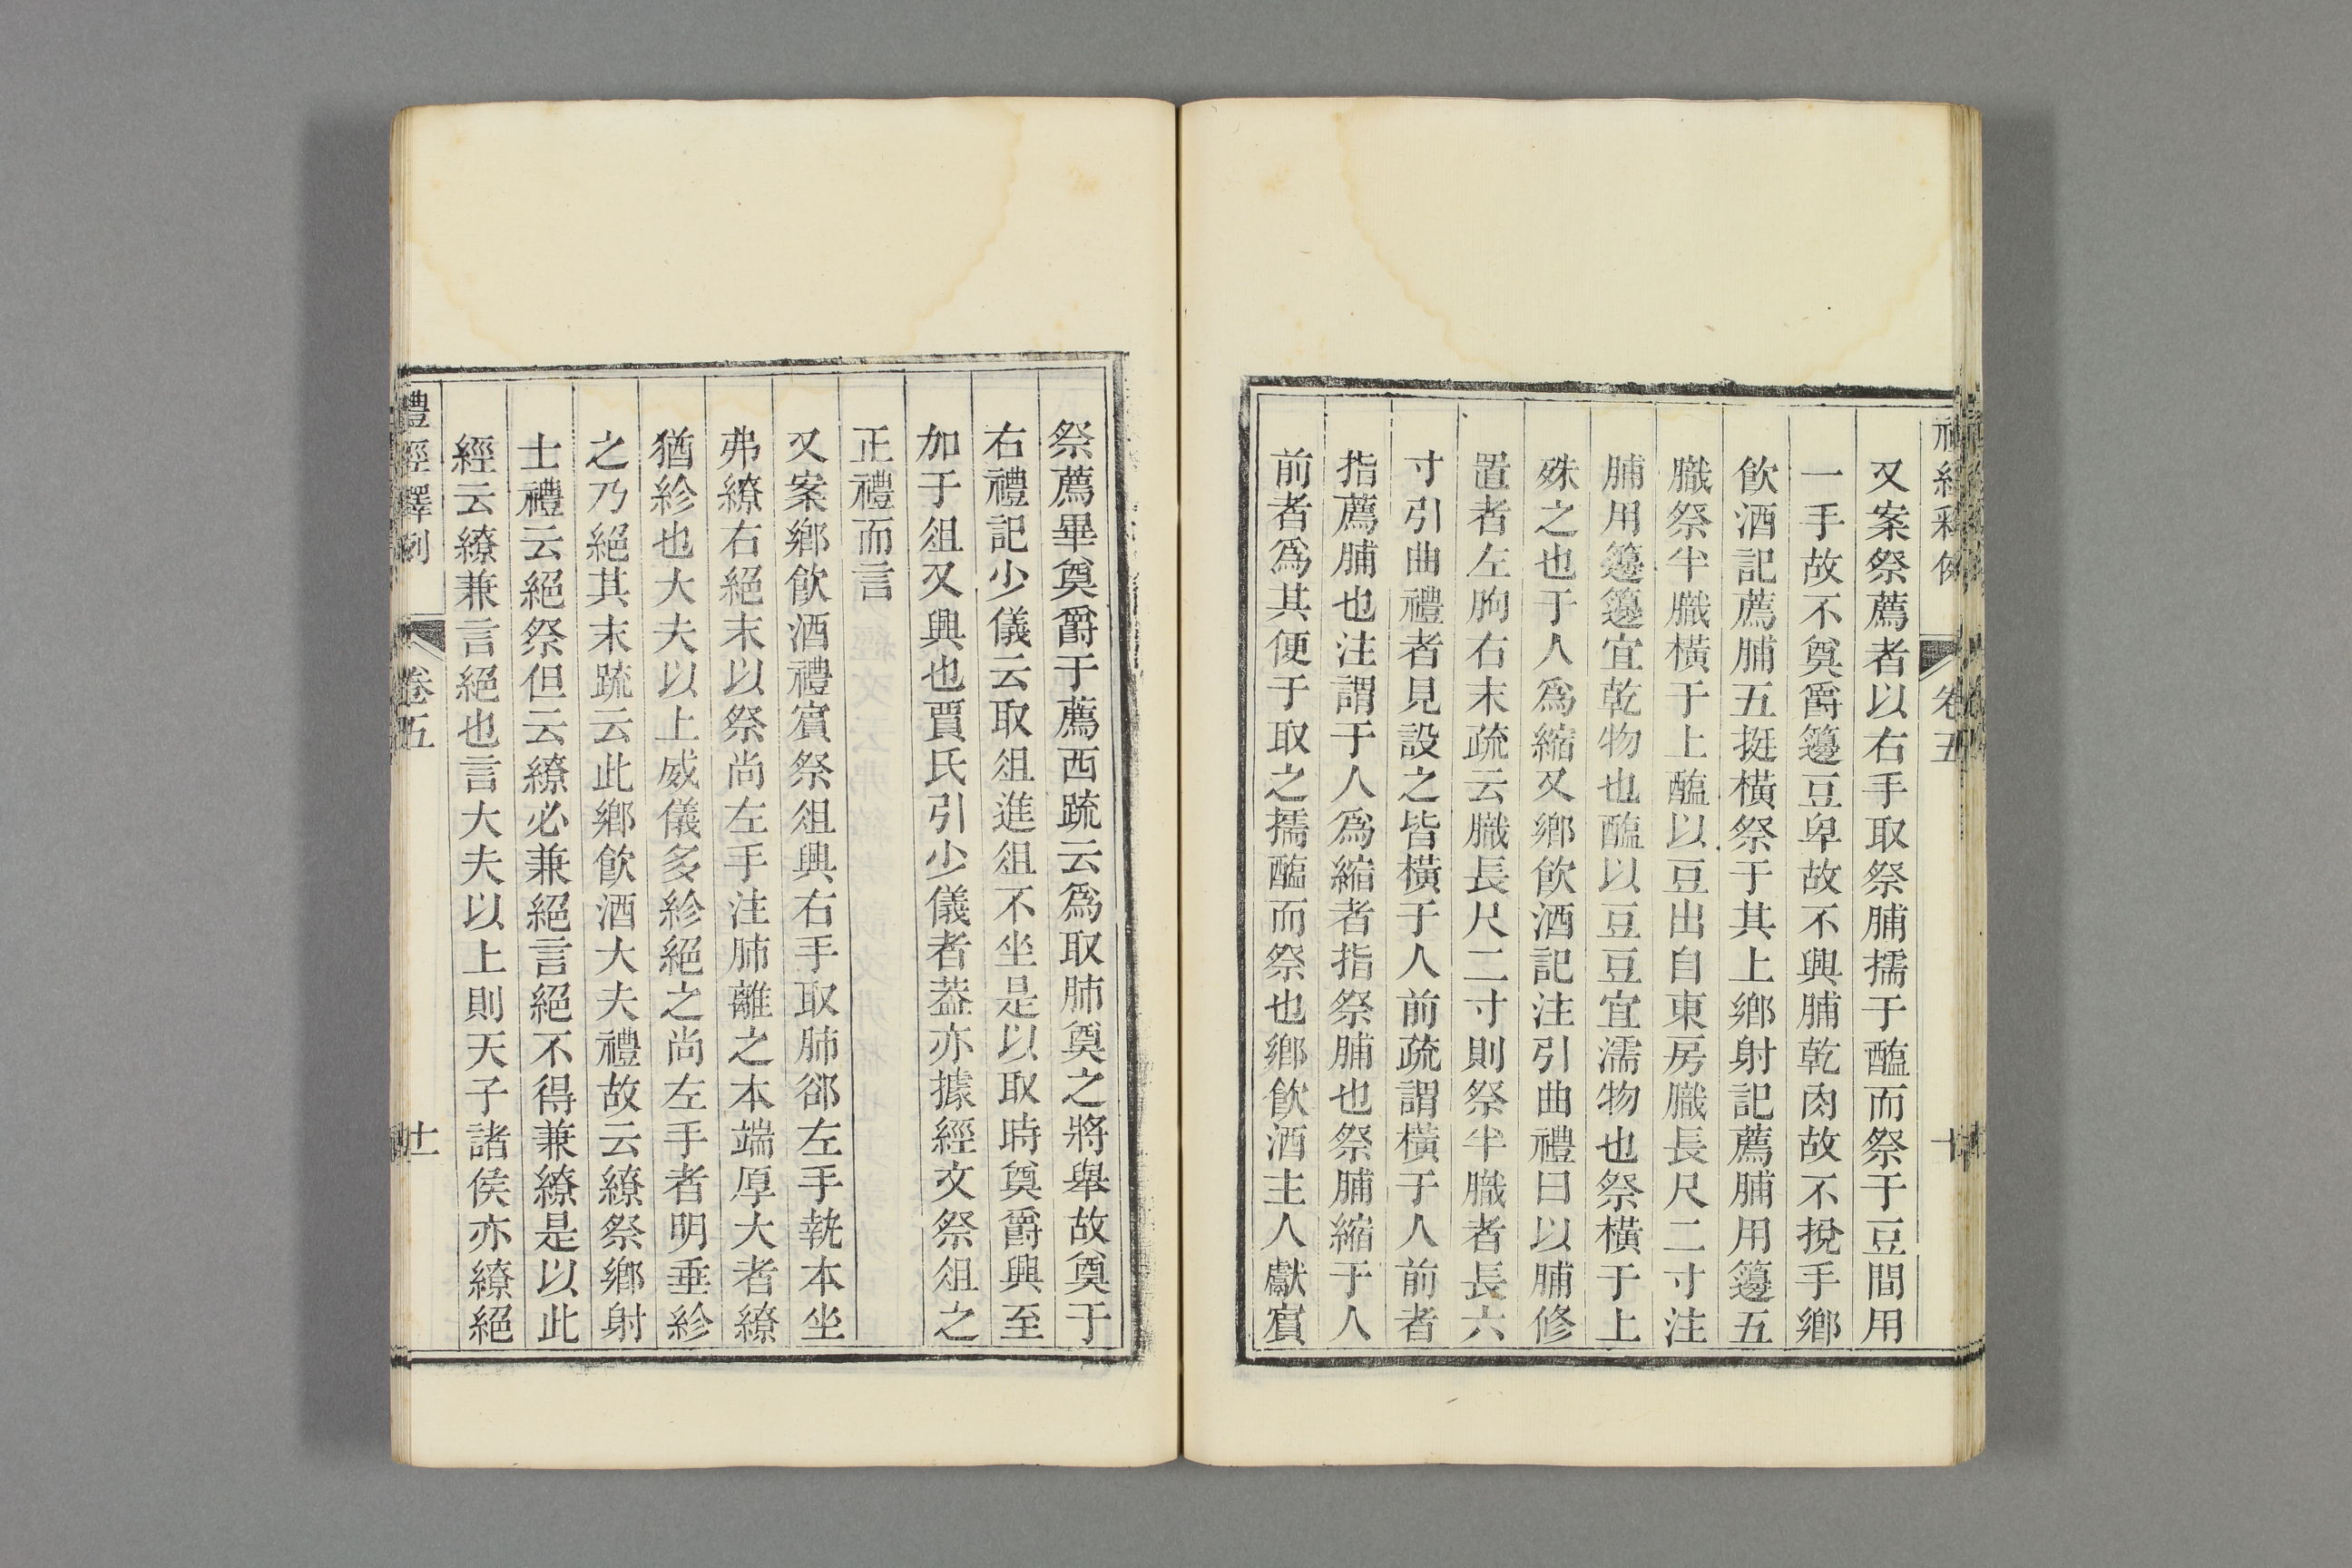 又案祭薦者以右手取祭脯擩于醢而祭于豆間用
一手故不奠爵籩豆卑故不興脯乾肉故不挩手鄉
飲酒記薦脯五挺橫祭于其上鄉射記薦脯用籩五
膱祭半膱橫于上醢以豆出自東房膱長尺二寸注
脯用籩籩宜乾物也醢以豆豆宜濡物也祭橫于上
殊之也于人爲縮又鄉飲酒記注引曲禮曰以脯修
置者左朐右末疏云膱長尺二寸則祭半膱者長六
寸引曲禮者見設之皆橫于人前疏謂橫于人前者
指薦脯也注謂于人爲縮者指祭脯也祭脯縮于人
前者爲其便于取之擩醢而祭也鄉飲酒主人獻賓
卷五
十
祭薦畢奠爵于薦西疏云爲取肺奠之將舉故奠于
右禮記少儀云取俎進俎不坐是以取時奠爵興至
加于俎又興也賈氏引少儀者葢亦據經文祭俎之
正禮而言
又案鄉飲酒禮賓祭俎興右手取肺卻左手執本坐
弗繚右絕末以祭尚左手注肺離之本端厚大者繚
猶紾也大夫以上威儀多紾絕之尚左手者明垂紾
之乃絕其末疏云此鄉飲酒大夫禮故云繚祭鄉射
士禮云絕祭但云繚必兼絕言絕不得兼繚是以此
經云繚兼言絕也言大夫以上則天子諸侯亦繚絕
禮經釋例
卷五
十一